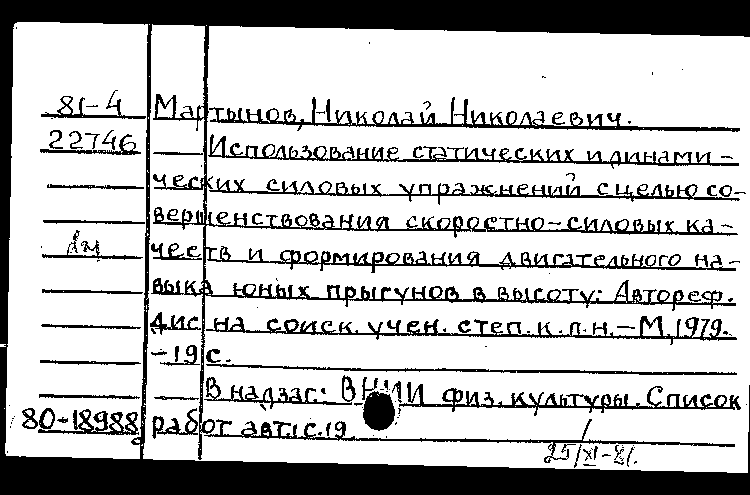 81-4 Мартынов, Николай Николаевич.
22746 Использование статических и динами-
ческих силовых упражнений с целью со-
вершенствования скоростно-силовых ка-
честв и формирования двигательного на-
выка юных прыгунов в высоту: Автореф.
дис на соиск. учен. степ. к.п.н. - М, 1979.
-19 с.
В надзаг: ВНИИ физ. культуры. Список
80-18988 работ авт.: с.19
25/XI-81.